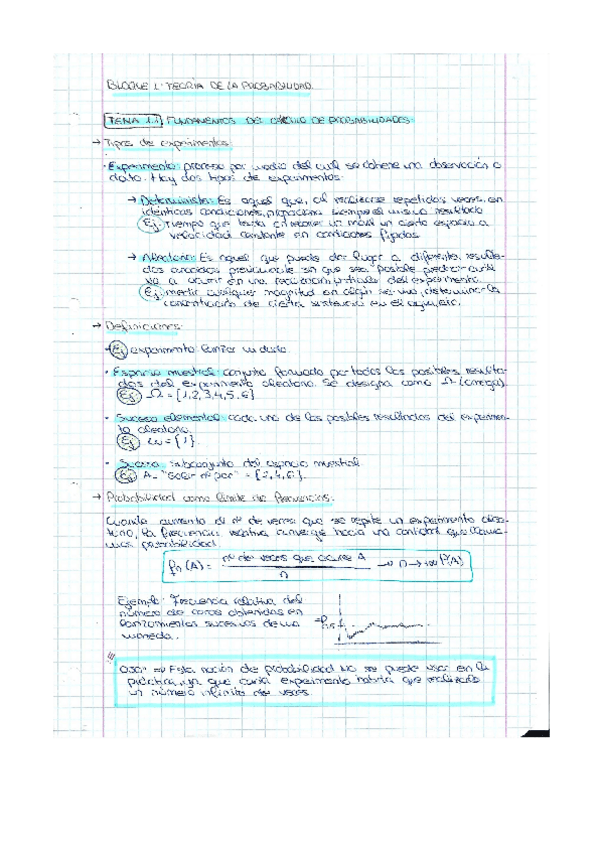 BLOQUE 1: TEORÍA DE LA PROBABILIDAD.
TEMA 1.1 FUNDAMENTOS DEL CÁLCULO DE PROBABILIDADES.
→ Tipos de experimentos:
· Experimento: proceso por medio del cual se obtiene una observación o
dato. Hay dos tipos de experimentos:
→ Determinista: Es aquel que, al realizarse repetidas veces, en
idénticas condiciones, proporciona siempre el mismo resultado
Ej: tiempo que tarda en recorrer un móvil un cierto espacio a
velocidad constante en condiciones fijadas.
→ Aleatorio: Es aquel que puede dar lugar a diferentes resulta-
dos conocidos previamente sin que sea posible predecir cuál
va a ocurrir en una realización particular del experimento.
Ej: medir cualquier magnitud en algún ser vivo, determinar la
concentración de cierta sustancia en el agua, etc.
→ Definiciones:
· Ej experimento: lanzar un dado.
· Espacio muestral: conjunto formado por todos los posibles resulta-
dos del experimento aleatorio. Se designa como Ω (omega).
Ej Ω = {1,2,3,4,5,6}
· Suceso elemental: cada uno de los posibles resultados del experimen-
to aleatorio.
Ej ω = {1}.
· Suceso: subconjunto del espacio muestral.
Ej A = "Salir nº par" = {2,4,6}.
→ Probabilidad como límite de frecuencias:
Cuando aumenta el nº de veces que se repite un experimento alea-
torio, la frecuencia relativa converge hacia una cantidad que llama-
mos probabilidad.
fn (A) = nº de veces que ocurre A / n → n→+∞ P(A)
Ejemplo: Frecuencia relativa del
número de caras obtenidas en
lanzamientos sucesivos de una
moneda.
OJO! ⇒ Esta noción de probabilidad no se puede usar en la
práctica, ya que cada experimento habría que realizarlo
un número infinito de veces.